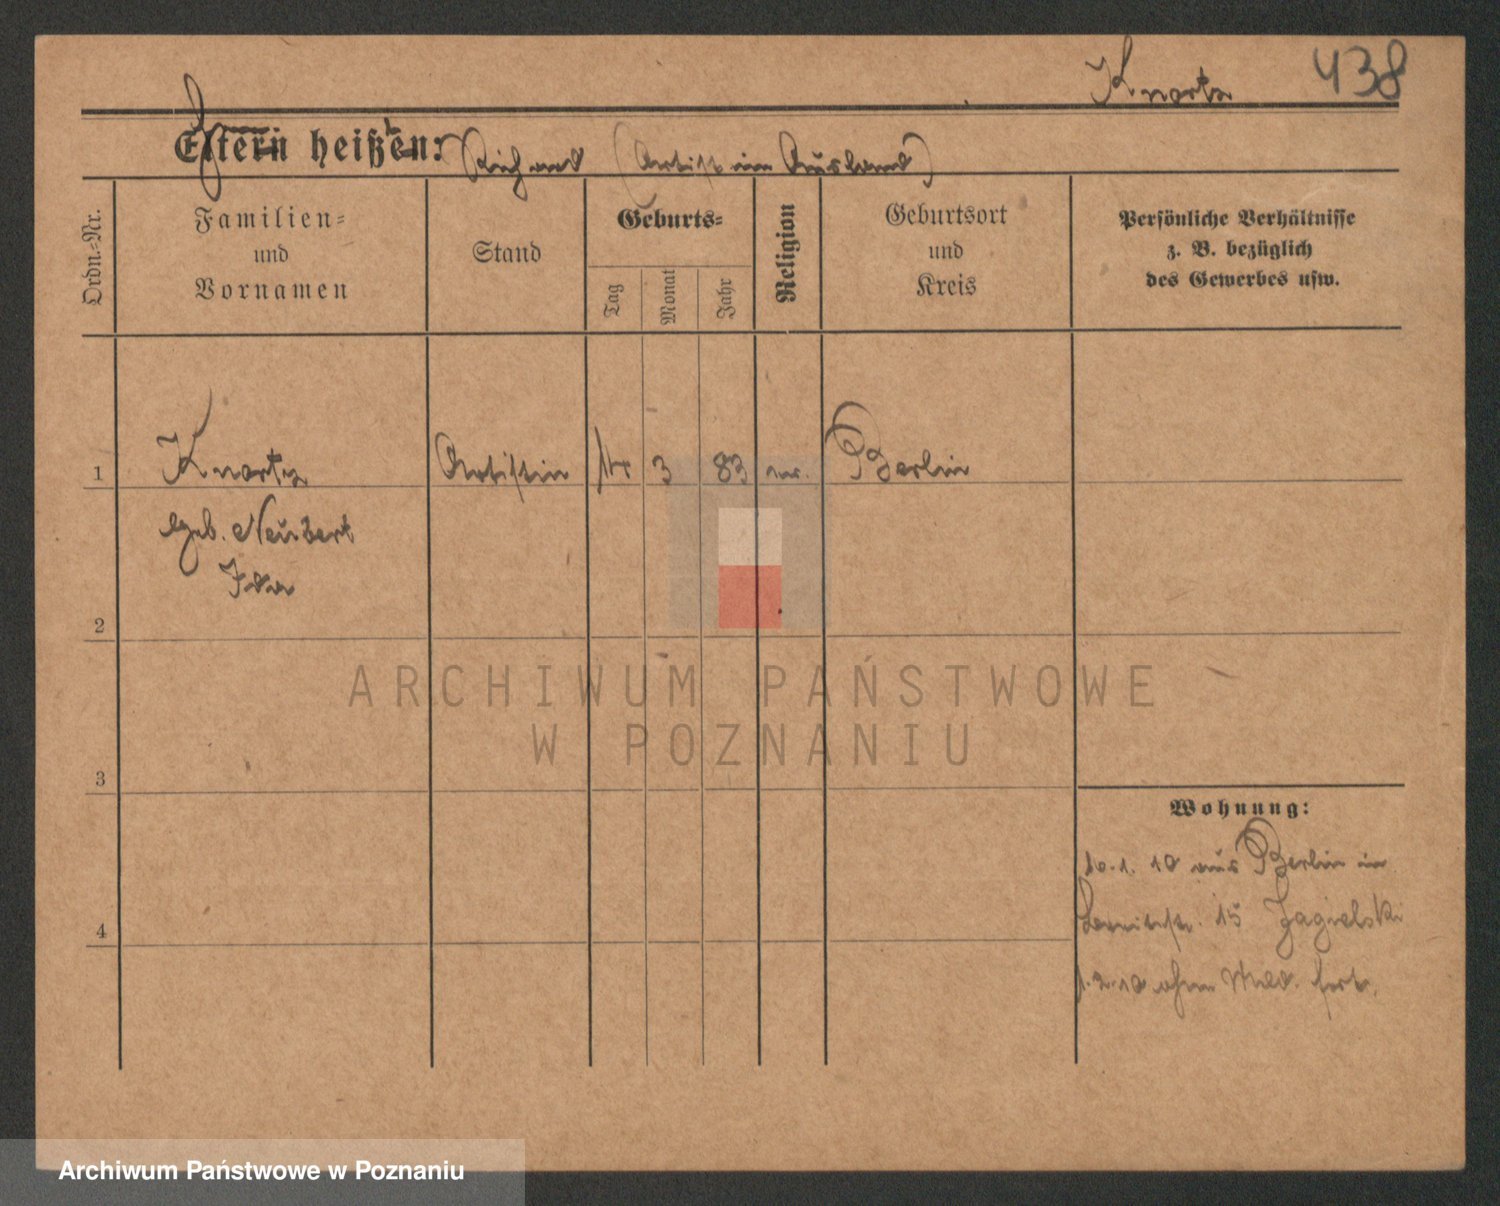 Knortz 438
Eltern heißen: Richard (Artist im Ausland)
Ordn.-Nr.
Familien-
und
Vornamen
Stand
Geburts-
Tag
Monat
Jahr
Religion
Geburtsort
und
Kreis
Persönliche Verhältnisse
z. B. bezüglich
des Gewerbes usw.
1 Knortz Artistin 3 83 Berlin
geb. Neubert
Ida
2
ARCHIWUM PAŃSTWOWE
W POZNANIU
3
Wohnung:
10.1.10 aus Berlin in
15 Jagielski
4
1.2.10 ohne Meld. fort.
Archiwum Państwowe w Poznaniu